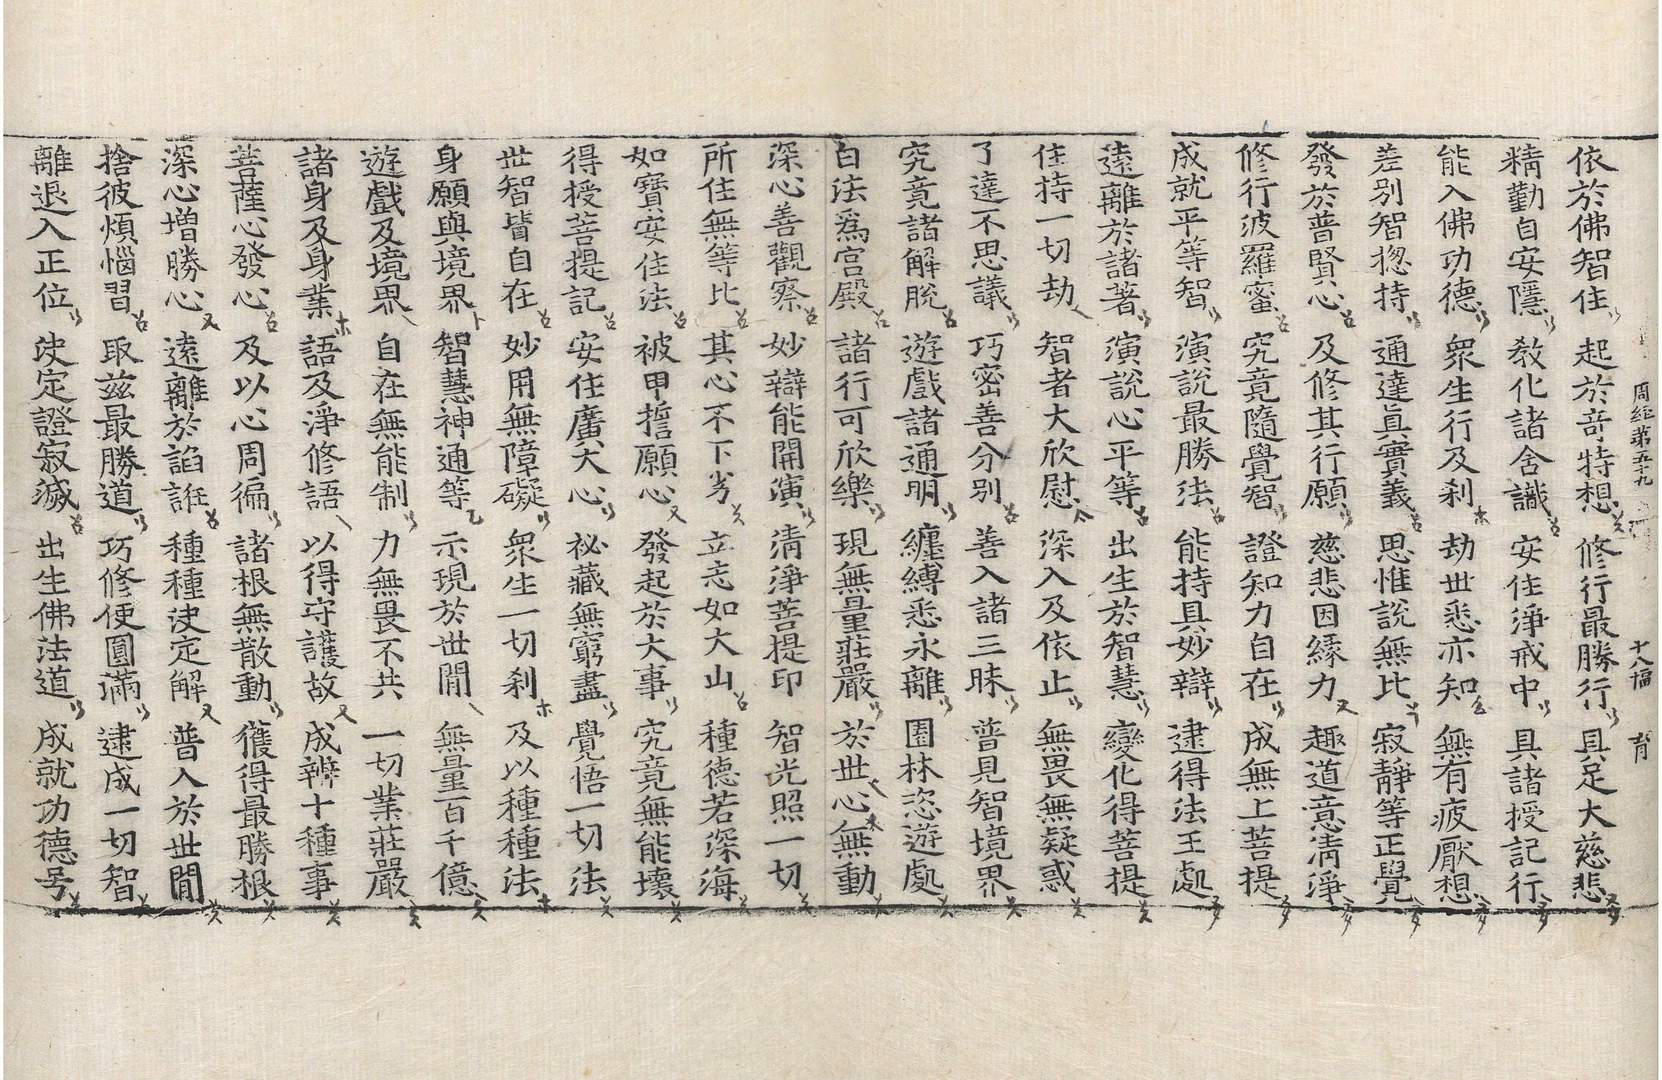 依於佛智住 起於竒特想 修行最勝行 具足大慈悲
精勤自安隱 教化諸含識 安住淨戒中 具諸授記行
能入佛功德 衆生行及刹 劫世悉亦知 無有疲厭想
差別智揔持 通達眞實義 思惟說無比 寂靜等正覺
發於普賢心 及修其行願 慈悲因緣力 趣道意淸淨
修行波羅蜜 究竟隨覺智 證知力自在 成無上菩提
成就平等智 演說最勝法 能持具妙辯 逮得法王處
遠離於諸著 演說心平等 出生於智慧 變化得菩提
住持一切劫 智者大欣慰 深入及依止 無畏無疑惑
了達不思議 巧密善分別 善入諸三昧 普見智境界
究竟諸解脫 遊戲諸通明 纏縛悉永離 園林恣遊處
白法爲宮殿 諸行可欣樂 現無量莊嚴 於世心無動
深心善觀察 妙辯能開演 淸淨菩提印 智光照一切
所住無等比 其心不下劣 立志如大山 種德若深海
如寶安住法 被甲誓願心 發起於大事 究竟無能壞
得授菩提記 安住廣大心 祕藏無窮盡 覺悟一切法
世智皆自在 妙用無障礙 衆生一切刹 及以種種法
身願與境界 智慧神通等 示現於世閒 無量百千億
遊戲及境界 自在無能制 力無畏不共 一切業莊嚴
諸身及身業 語及淨修語 以得守護故 成辨十種事
菩薩心發心 及以心周徧 諸根無散動 獲得最勝根
深心增勝心 遠離於諂誑 種種決定解 普入於世閒
捨彼煩惱習 取兹最勝道 巧修使圓滿 逮成一切智
離退入正位 決定證寂滅 出生佛法道 成就功德号
周經第五十九 十八幅